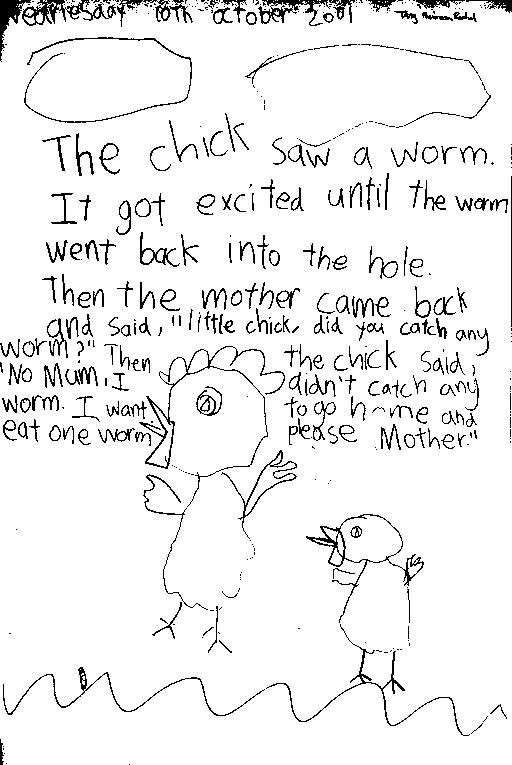 Wednesday 10th October 2001
The chick saw a worm.
It got excited until the worm
went back into the hole.
Then the mother came back
and said, "little chick, did you catch any
worm?" Then the chick said,
"No Mum, I didn't catch any
worm. I want to go home and
eat one worm please Mother."